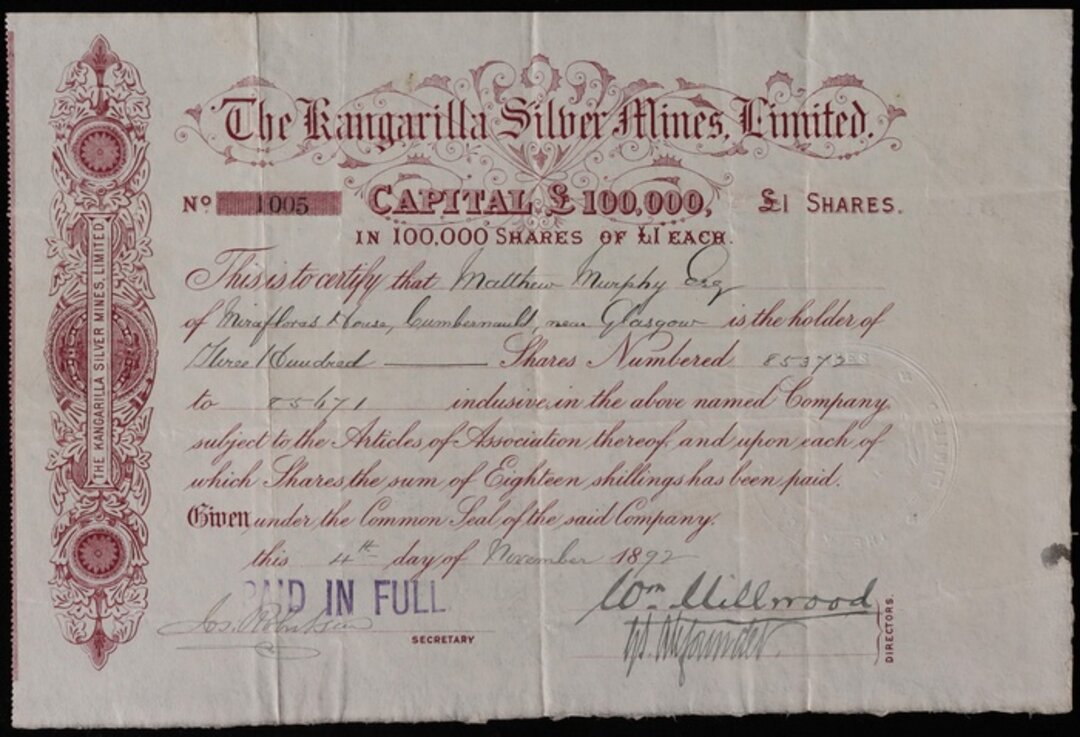 The Kangarilla Silver Mines, Limited.
No 1005 CAPITAL £100,000, £1 SHARES.
IN 100,000 SHARES OF £1 EACH.
This is to certify that Matthew Murphy Esq
of Miraflores House, Cumbernauld, near Glasgow is the holder of
Three Hundred Shares Numbered 85372
to 85671 inclusive, in the above named Company
subject to the Articles of Association thereof, and upon each of
which Shares, the sum of Eighteen shillings has been paid.
Given under the Common Seal of the said Company.
this 4th day of November 1892
PAID IN FULL
Wm Millwood
SECRETARY
DIRECTORS.
THE KANGARILLA SILVER MINES, LIMITED.